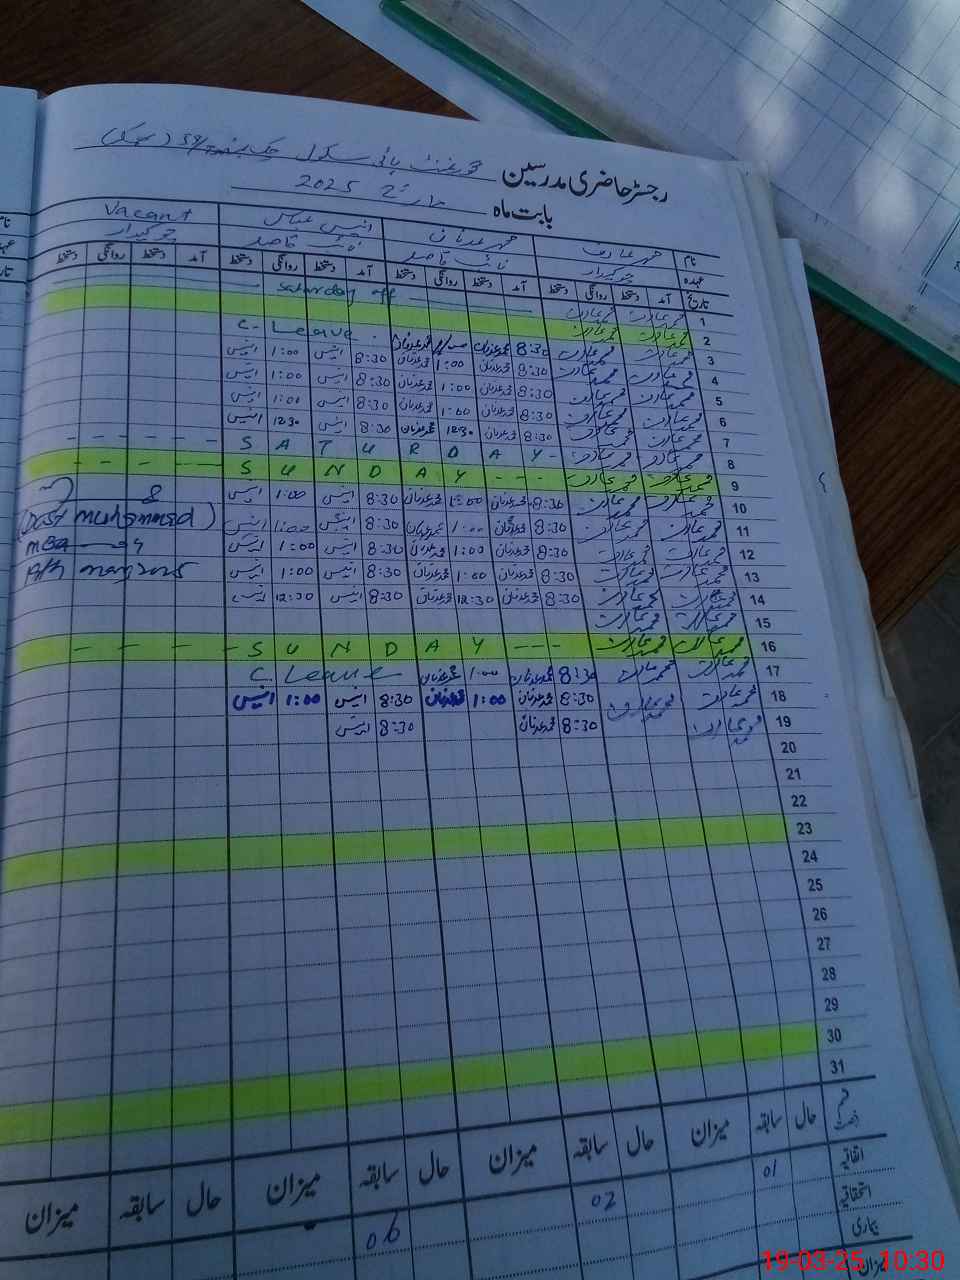 رجسٹر حاضری مدرسین گورنمنٹ ہائی سکول چک نمبر
بابت ماہ مارچ 2025
نام محمد عارف محمد عدنان انیس عباس Vacant
عہدہ چوکیدار نائب قاصد نائب قاصد چوکیدار
تاریخ آمد دستخط روانگی دستخط آمد دستخط روانگی دستخط آمد دستخط روانگی دستخط آمد دستخط روانگی دستخط
1 محمد عارف محمد عارف Saturday off
2 محمد عارف محمد عارف
3 محمد عارف محمد عارف 8:30 محمد عدنان محمد عدنان C. Leave
4 محمد عارف محمد عارف 8:30 محمد عدنان 1:00 محمد عدنان 8:30 انیس 1:00 انیس
5 محمد عارف محمد عارف 8:30 محمد عدنان 1:00 محمد عدنان 8:30 انیس 1:00 انیس
6 محمد عارف محمد عارف 8:30 محمد عدنان 1:00 محمد عدنان 8:30 انیس 1:00 انیس
7 محمد عارف محمد عارف 8:30 محمد عدنان 12:30 محمد عدنان 8:30 انیس 12:30 انیس
8 محمد عارف محمد عارف S A T U R D A Y
9 محمد عارف محمد عارف S U N D A Y
10 محمد عارف محمد عارف 8:30 محمد عدنان 1:00 محمد عدنان 8:30 انیس 1:00 انیس
11 محمد عارف محمد عارف 8:30 محمد عدنان 1:00 محمد عدنان 8:30 انیس 1:00 انیس
(Dost Muhammad)
12 محمد عارف محمد عارف 8:30 محمد عدنان 1:00 محمد عدنان 8:30 انیس 1:00 انیس
MEA
13 محمد عارف محمد عارف 8:30 محمد عدنان 1:00 محمد عدنان 8:30 انیس 1:00 انیس
19th 2025
14 محمد عارف محمد عارف 8:30 محمد عدنان 12:30 محمد عدنان 8:30 انیس 12:30 انیس
15 محمد عارف محمد عارف
16 محمد عارف محمد عارف S U N D A Y
17 محمد عارف محمد عارف 8:30 محمد عدنان 1:00 محمد عدنان C. Leave
18 محمد عارف محمد عارف 8:30 محمد عدنان 1:00 محمد عدنان 8:30 انیس 1:00 انیس
19 محمد عارف 8:30 محمد عدنان 8:30 انیس
20
21
22
23
24
25
26
27
28
29
30
31
قسم رخصت حال سابقہ میزان حال سابقہ میزان حال سابقہ میزان حال سابقہ میزان
اتفاقیہ 01 02 06
استحقاقیہ
بیماری
میزان
19-03-25, 10:30